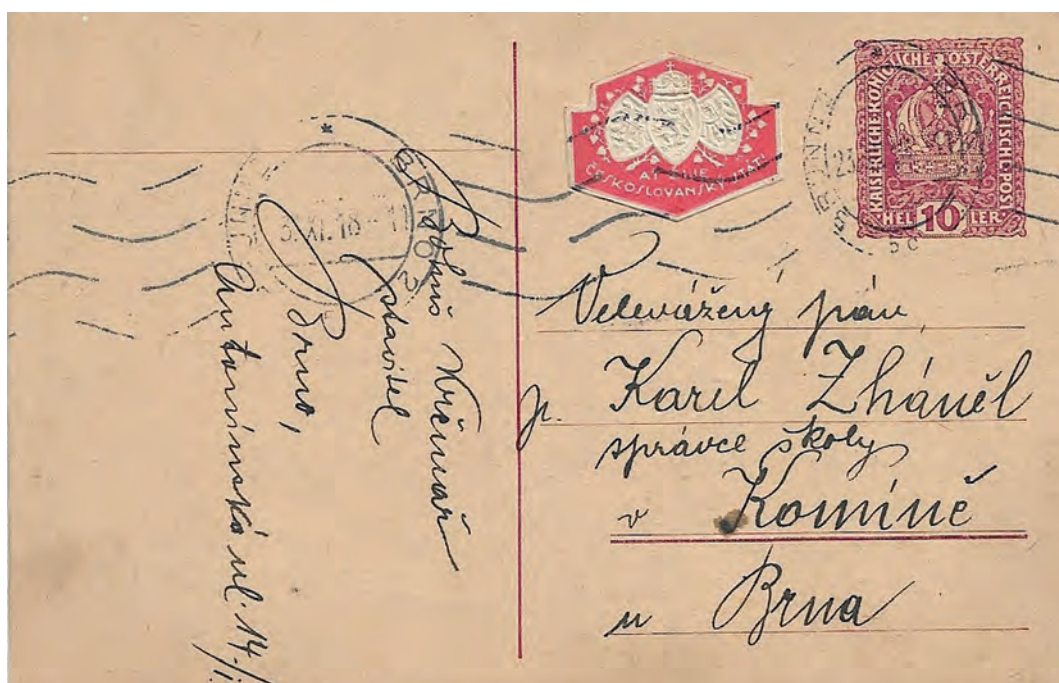 KAISERLICHE KÖNIGLICHE ÖSTERREICHISCHE POST
HELLER
10
AŤ ŽIJE
ČESKOSLOVANSKÝ STÁT!
BRNO 2
XI. 18
Velevážený pán
p. Karel Zháněl
správce školy
v Komíně
u Brna
Bohuš
stavitel
Brno,
Antonínská ul. 14./I.